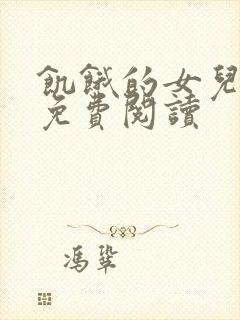 飢餓的女兒
免費閱讀
馮鞏